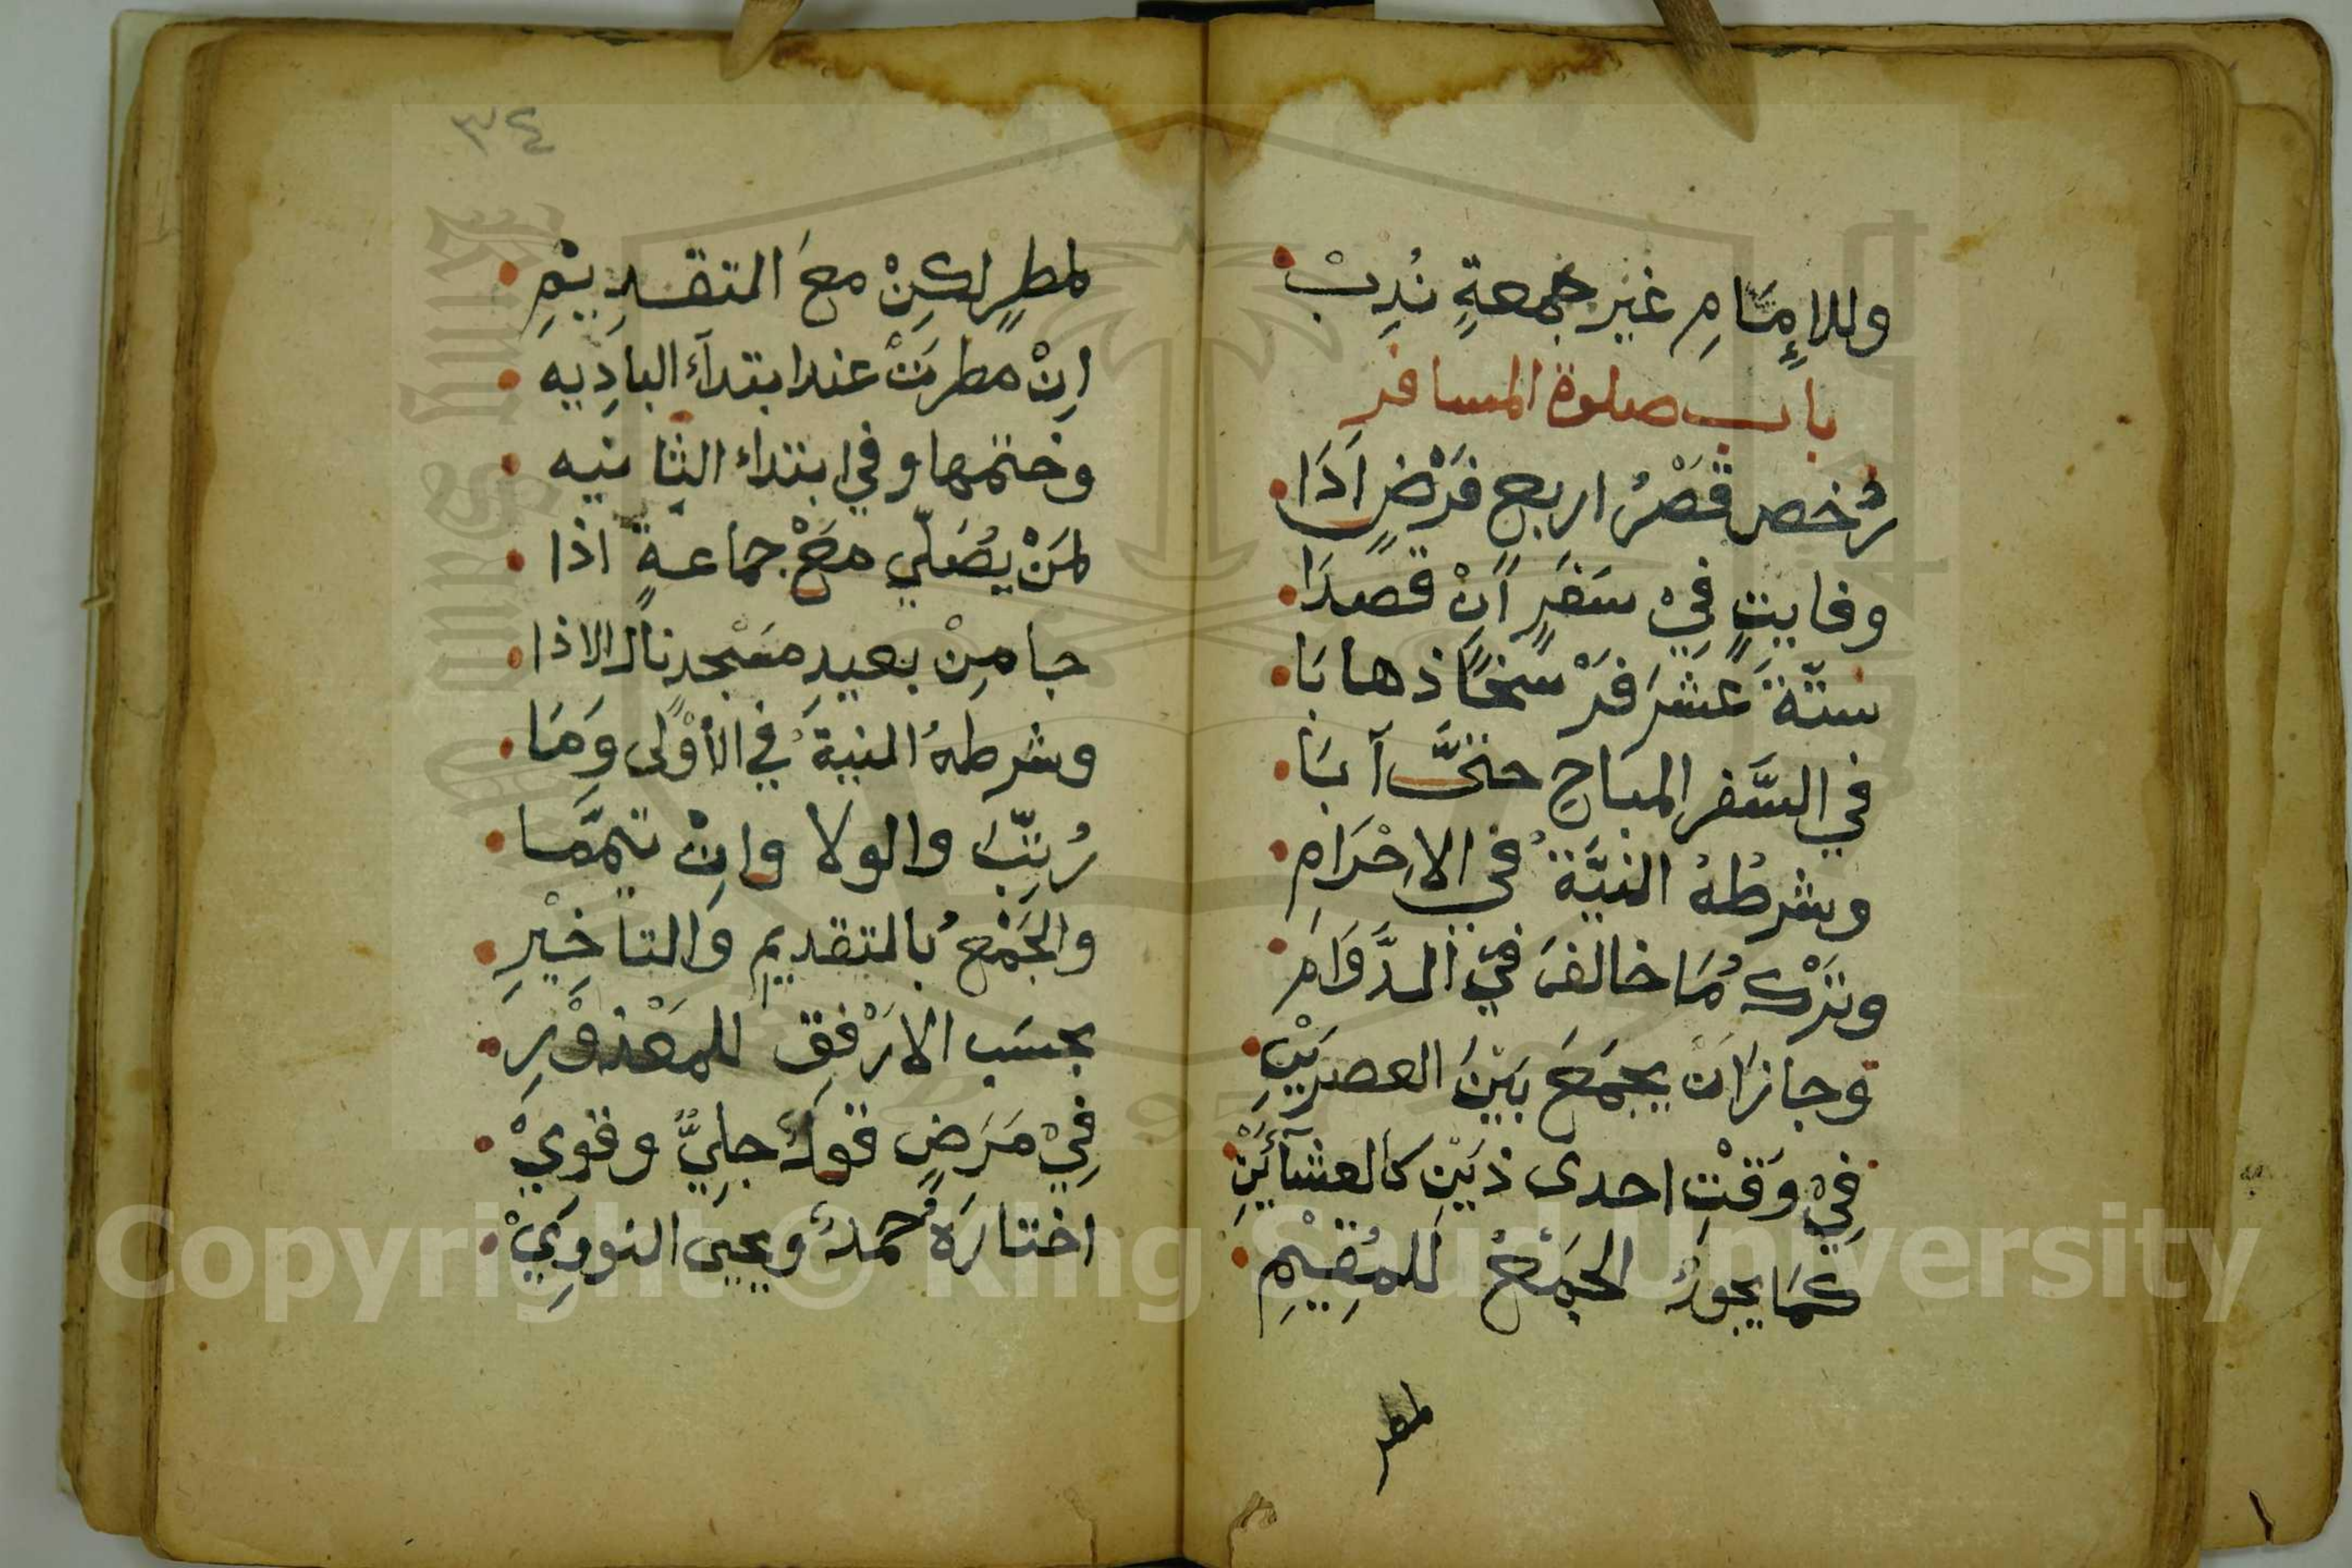 وللإمَامِ غير جُمعةٍ نُدِبْ
باب صلوة المسافر
رُخص قَصْرُ اربع فَرْضٍ اَدَا
وفايتٍ فِيْ سَفَرٍ اَنْ قصدَا
ستّةَ عَشَرَ فَرْسَخًا ذهابَا
في السَّفر المبَاحِ حتَّى آبَا
وشرطُهُ النيَّةُ في الاِحْرَامِ
وتَرْكُ مَا خالفَ فيْ الدَّوَامِ
وجازاَنْ يجمَعَ بَيْنَ العصرَيْنِ
فِيْ وَقْتِ احدى ذَيْنِ كالعشآئَيْنِ
كمَا يجوزُ الجَمْعُ للمُقِيْمِ
لمطر
٣٤
لمطرٍ لكِنْ معَ التقدِيْمِ
اِنْ مطرتْ عندابتدآء البادِيه
وختمها وفي ابتداء الثانيه
لمَنْ يُصَلّي مَعْ جماعةٍ اذا
جا مِنْ بعيدِ مسْجدٍ نال الاذا
وشرطهُ النيةُ في الأوْلى وَمَا
رُتِّبَ والولا وانْ تيمَّما
والجَمْعُ بالتقديمِ والتاخِيْرِ
بحسَب الارْفِق للمَعْذوْرِ
فِيْ مَرَضٍ قولٌ جلِيٌّ وقوِيْ
اختارَهُ حَمدٌ ويحيى النووِيْ
Copyright © King Saud University